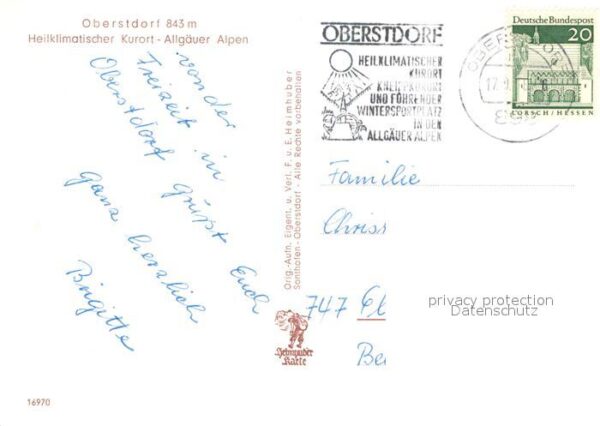 Oberstdorf 843 m
Heilklimatischer Kurort - Allgäuer Alpen
von der
Freizeit in
Oberstdorf grüßt Euch
ganz herzlich
Brigitte
Orig.-Aufn. Eigent. u. Verl. F. u. E. Heimhuber
Sonthofen-Oberstdorf - Alle Rechte vorbehalten
Heimhuber
Karte
16970
OBERSTDORF
HEILKLIMATISCHER
KURORT
KNEIPPKURORT
UND FÜHRENDER
WINTERSPORTPLATZ
IN DEN
ALLGÄUER ALPEN
Deutsche Bundespost
20
LORSCH/HESSEN
Familie
Chriss
747 El
Be
privacy protection
Datenschutz